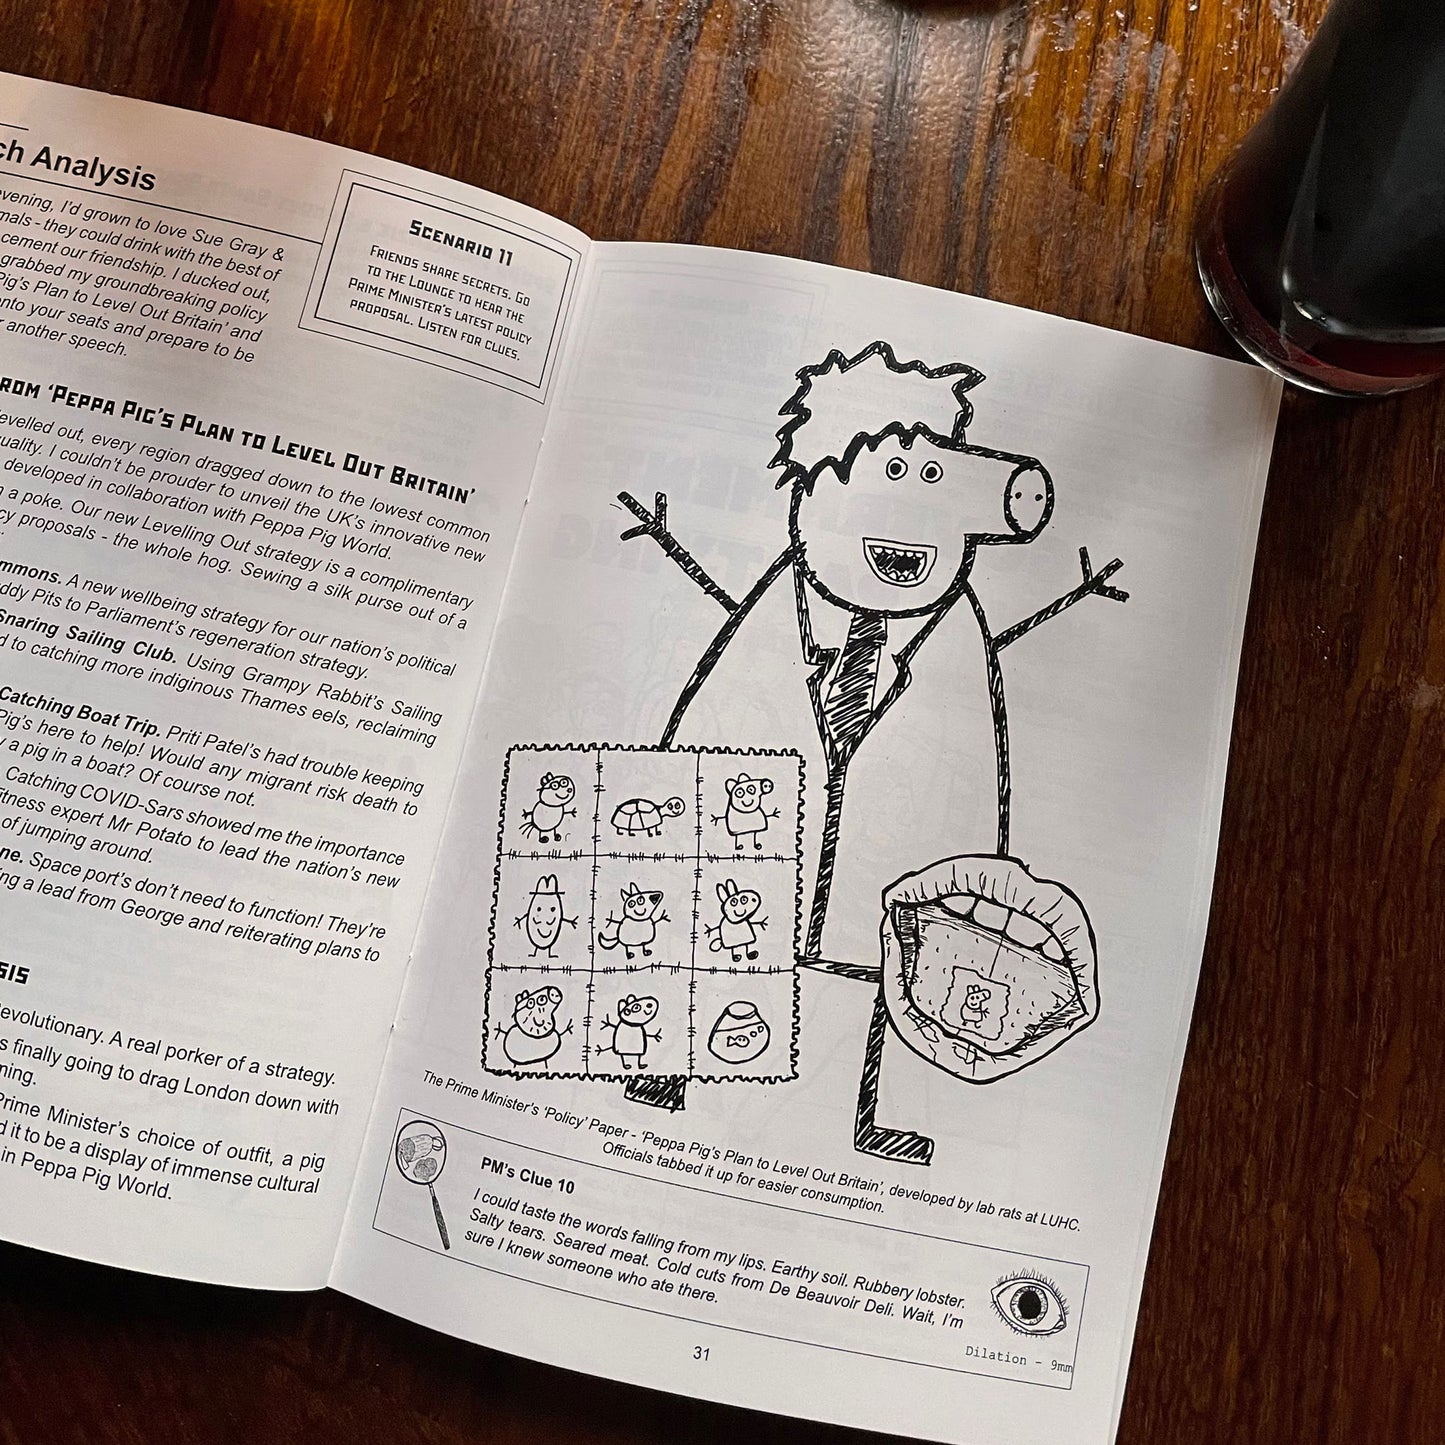 ch Analysis
evening, I'd grown to love Sue Gray &
mals - they could drink with the best of
cement our friendship. I ducked out,
grabbed my groundbreaking policy
Pig's Plan to Level Out Britain' and
onto your seats and prepare to be
r another speech.
SCENARIO 11
FRIENDS SHARE SECRETS. GO
TO THE LOUNGE TO HEAR THE
PRIME MINISTER'S LATEST POLICY
PROPOSAL. LISTEN FOR CLUES.
ROM 'PEPPA PIG'S PLAN TO LEVEL OUT BRITAIN'
levelled out, every region dragged down to the lowest common
uality. I couldn't be prouder to unveil the UK's innovative new
developed in collaboration with Peppa Pig World.
n a poke. Our new Levelling Out strategy is a complimentary
cy proposals - the whole hog. Sewing a silk purse out of a
mmons. A new wellbeing strategy for our nation's political
ddy Pits to Parliament's regeneration strategy.
Snaring Sailing Club. Using Grampy Rabbit's Sailing
d to catching more indiginous Thames eels, reclaiming
Catching Boat Trip. Priti Patel's had trouble keeping
Pig's here to help! Would any migrant risk death to
y a pig in a boat? Of course not.
Catching COVID-Sars showed me the importance
itness expert Mr Potato to lead the nation's new
of jumping around.
ne. Space port's don't need to function! They're
ing a lead from George and reiterating plans to
SIS
levolutionary. A real porker of a strategy.
s finally going to drag London down with
ning.
Prime Minister's choice of outfit, a pig
d it to be a display of immense cultural
in Peppa Pig World.
The Prime Minister's 'Policy' Paper - 'Peppa Pig's Plan to Level Out Britain', developed by lab rats at LUHC.
Officials tabbed it up for easier consumption.
PM's Clue 10
I could taste the words falling from my lips. Earthy soil. Rubbery lobster.
Salty tears. Seared meat. Cold cuts from De Beauvoir Deli. Wait, I'm
sure I knew someone who ate there.
Dilation - 9mm
31